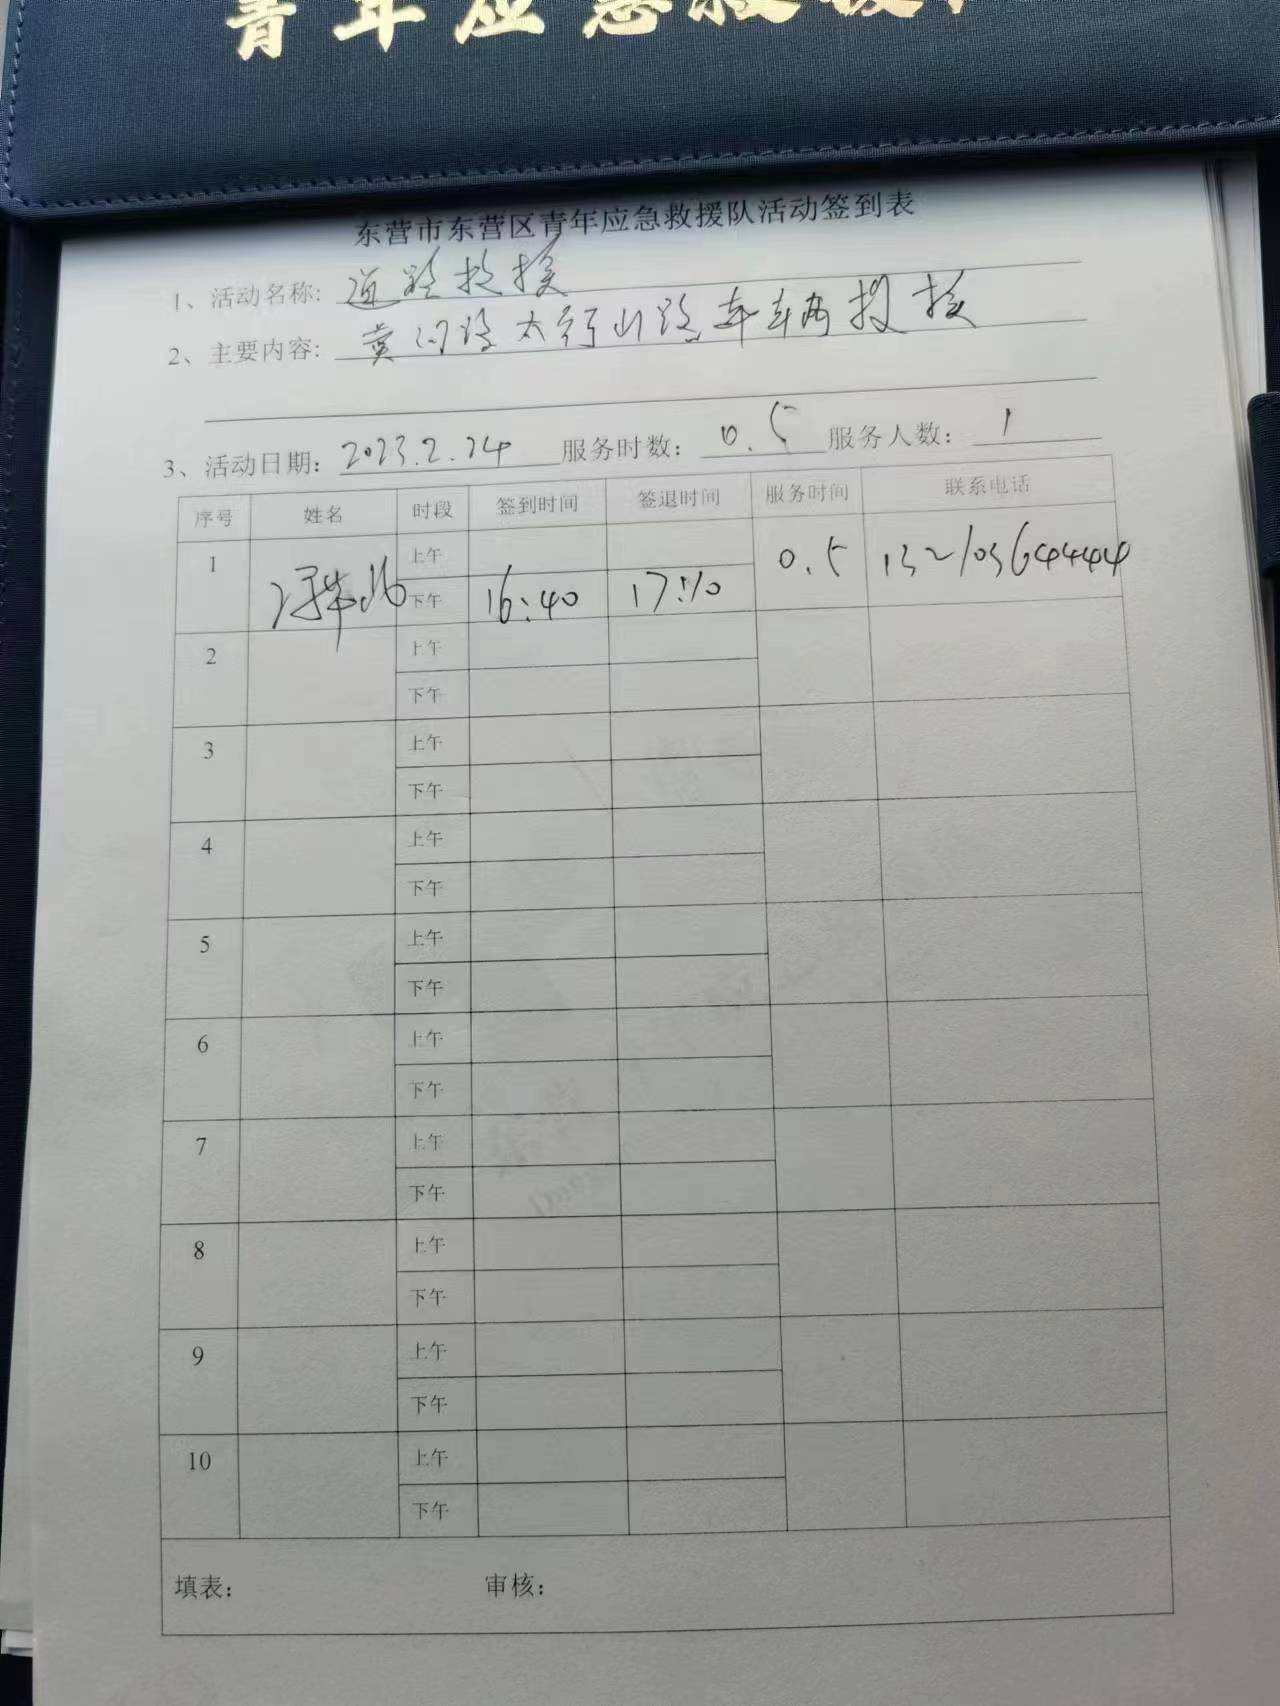 青年应急救援
东营市东营区青年应急救援队活动签到表
1、活动名称: 道路救援
2、主要内容: 黄河路太行山路车辆救援
3、活动日期: 2023.2.24 服务时数: 0.5 服务人数: 1
序号 姓名 时段 签到时间 签退时间 服务时间 联系电话
1 上午 0.5 13210364444
下午 16:40 17:10
2 上午
下午
3 上午
下午
4 上午
下午
5 上午
下午
6 上午
下午
7 上午
下午
8 上午
下午
9 上午
下午
10 上午
下午
填表: 审核: